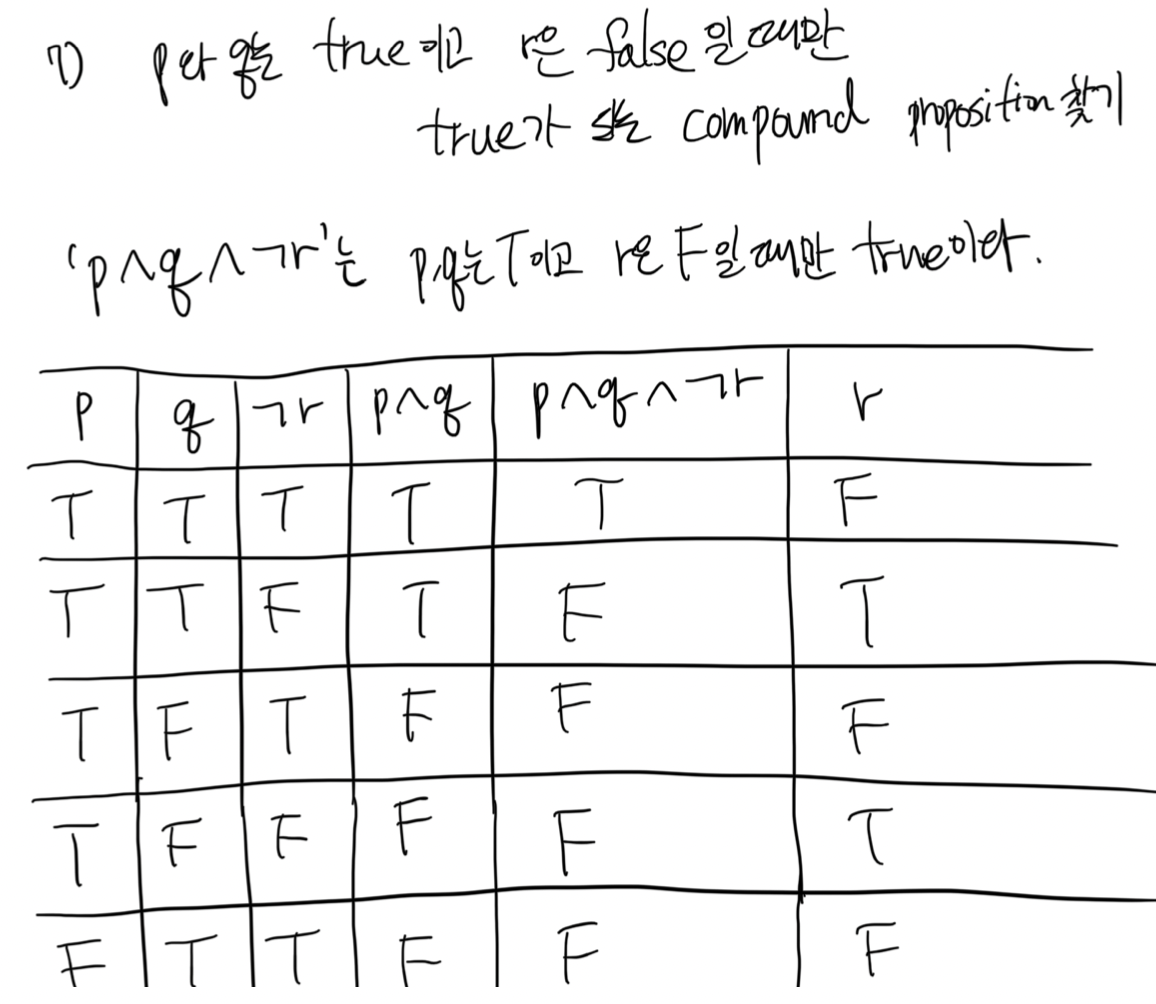 7) p와 q는 true이고 r은 false일 때만
true가 되는 compound proposition 찾기
'p∧q∧¬r'는 p,q는 T이고 r은 F일 때만 true이다.
p q ¬r p∧q p∧q∧¬r r
T T T T T F
T T F T F T
T F T F F F
T F F F F T
F T T F F F